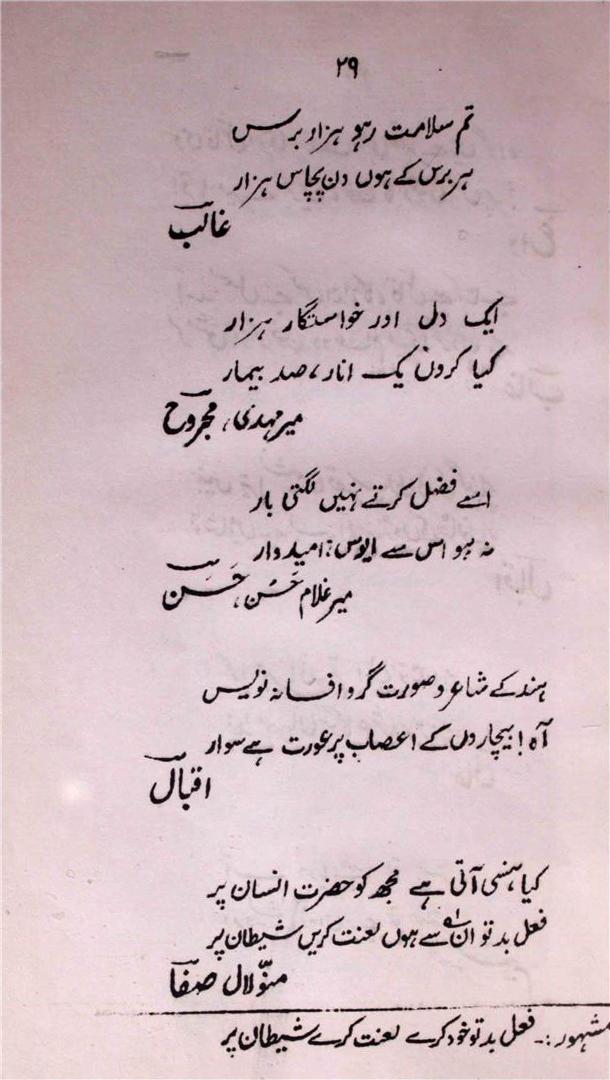 ۲۹
تم سلامت رہو ہزار برس
ہر برس کے ہوں دن پچاس ہزار
غالب
ایک دل اور خواستگار ہزار
کیا کروں یک انار، صد بیمار
میر مہدی، مجروح
اسے فضل کرتے نہیں لگتی بار
نہ ہو اس سے مایوس، امیدوار
میر غلام حَسَن، حَسَن
ہند کے شاعر و صورت گر و افسانہ نویس
آہ! بیچاروں کے اعصاب پر عورت ہے سوار
اقبال
کیا ہنسی آتی ہے مجھ کو حضرت انسان پر
فعل بد تو ان سے ہوں لعنت کریں شیطان پر
منّو لال صفا
مشہور:۔ فعل بد تو خود کرے لعنت کرے شیطان پر